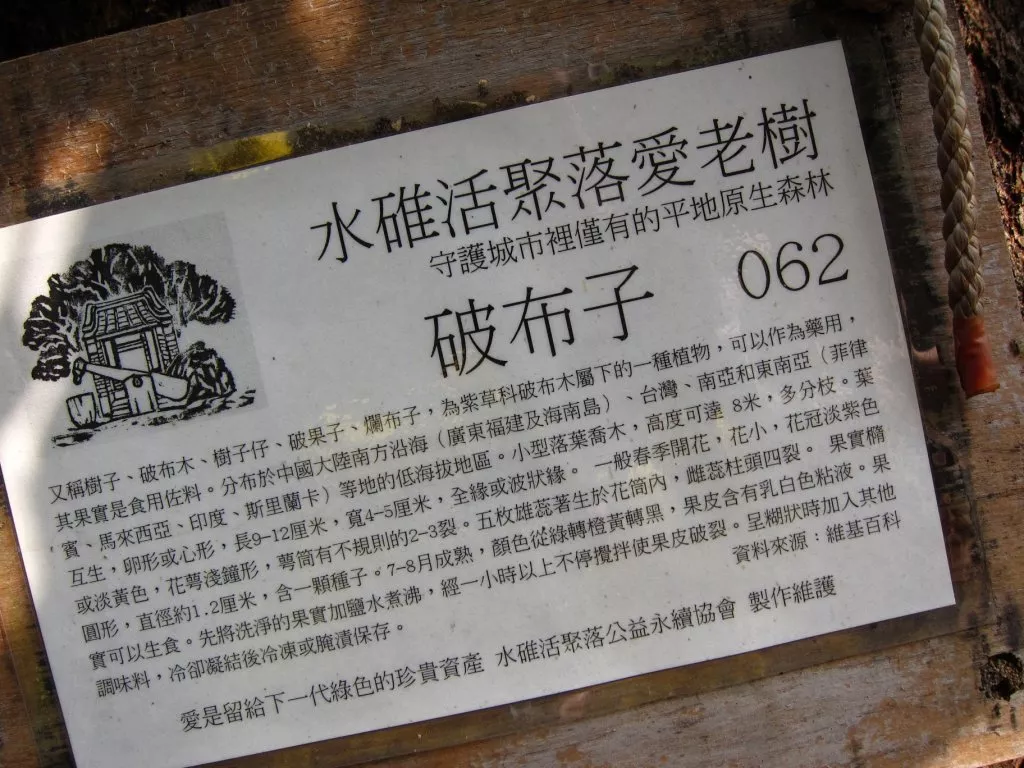 水碓活聚落愛老樹
守護城市裡僅有的平地原生森林
破布子 062
又稱樹子、破布木、樹子仔、破果子、爛布子，為紫草科破布木屬下的一種植物，可以作為藥用，
其果實是食用佐料。分布於中國大陸南方沿海（廣東福建及海南島）、台灣、南亞和東南亞（菲律
賓、馬來西亞、印度、斯里蘭卡）等地的低海拔地區。小型落葉喬木，高度可達 8米，多分枝。葉
互生，卵形或心形，長9-12厘米，寬4-5厘米，全緣或波狀緣。 一般春季開花，花小，花冠淡紫色
或淡黃色，花萼淺鐘形，萼筒有不規則的2-3裂。五枚雄蕊著生於花筒內，雌蕊柱頭四裂。 果實橢
圓形，直徑約1.2厘米，含一顆種子。7-8月成熟，顏色從綠轉橙黃轉黑，果皮含有乳白色粘液。果
實可以生食。先將洗淨的果實加鹽水煮沸，經一小時以上不停攪拌使果皮破裂。呈糊狀時加入其他
調味料，冷卻凝結後冷凍或腌漬保存。
資料來源：維基百科
愛是留給下一代綠色的珍貴資產 水碓活聚落公益永續協會 製作維護